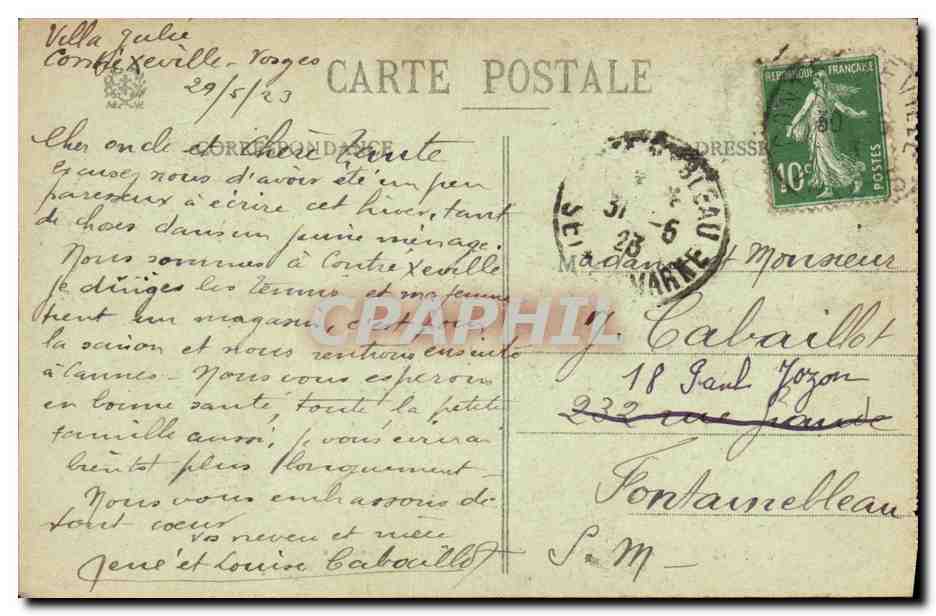 Villa Julie
Contrexeville - Vosges
29/5/23
CARTE POSTALE
CORRESPONDANCE
ADRESSE
Cher oncle et chère Tante
Excusez nous d'avoir été un peu
paresseux à écrire cet hiver, tant
de choses dans un jeune ménage.
Nous sommes à Contréxeville
je dirige les tennis et ma femme
tient un magasin, c'est pour
la saison et nous rentrons ensuite
à Cannes - Nous vous esperons
en bonne santé, toute la petite
famille aussi, je vous écrirai
bientôt plus longuement
Nous vous embrassons de
tout coeur
vos neveu et nièce
René et Louise Cabaillot
REPUBLIQUE FRANÇAISE
10c
POSTES
31 - 5
23
Madame et Monsieur
J. Cabaillot
18 Paul Jozon
232 rue Grande
Fontainebleau
S.-M-
CPAPHIL